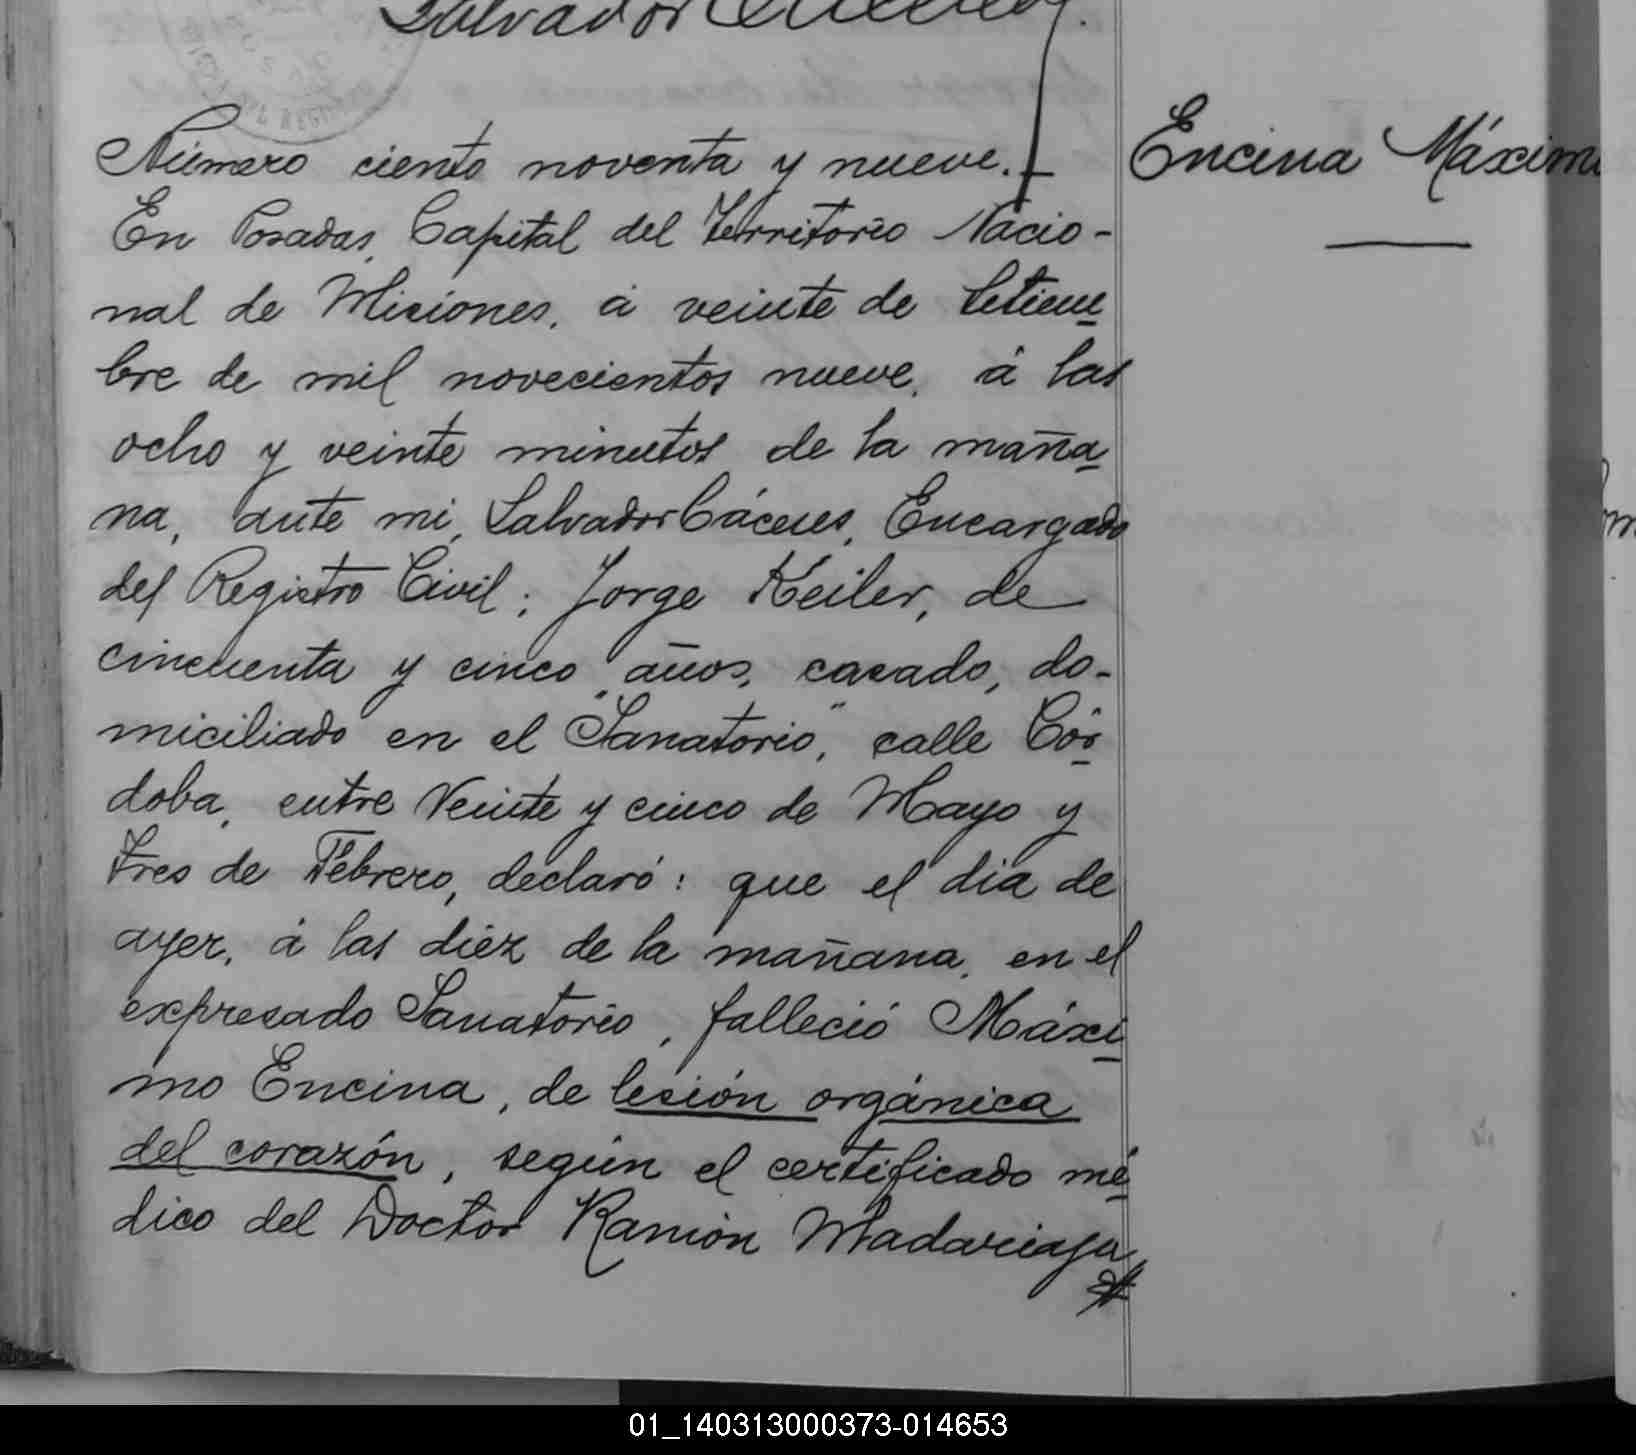 Salvador Cáceres.
Número ciento noventa y nueve.-
Encina Máximo
En Posadas, Capital del Territorio Nacio-
nal de Misiones, á veinte de Setiem-
bre de mil novecientos nueve, á las
ocho y veinte minutos de la maña-
na, ante mi, Salvador Cáceres, Encargado
del Registro Civil; Jorge Keiler, de
cincuenta y cinco años, casado, do-
miciliado en el "Sanatorio", calle Cór-
doba, entre Veinte y cinco de Mayo y
Tres de Febrero, declaró: que el dia de
ayer, á las diéz de la mañana, en el
expresado Sanatorio, falleció Máxi-
mo Encina, de lesión orgánica
del corazón, según el certificado mé-
dico del Doctor Ramón Madariaga
01_140313000373-014653